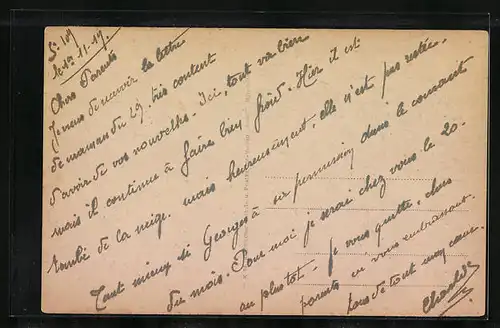 le 1er-11-17
Chers Parents
Je viens de recevoir la lettre
de maman du 29. très content
d'avoir de vos nouvelles. Ici, tout va bien
mais il continue à faire bien froid. Hier il est
tombé de la neige. mais heureusement, elle n'est pas restée.
Tant mieux si Georges à sa permission dans le courant
du mois. Pour moi je serai chez vous le 20-
au plus tôt. Je vous quitte, chers
parents en vous embrassant
tous de tout mon cœur.
Charles